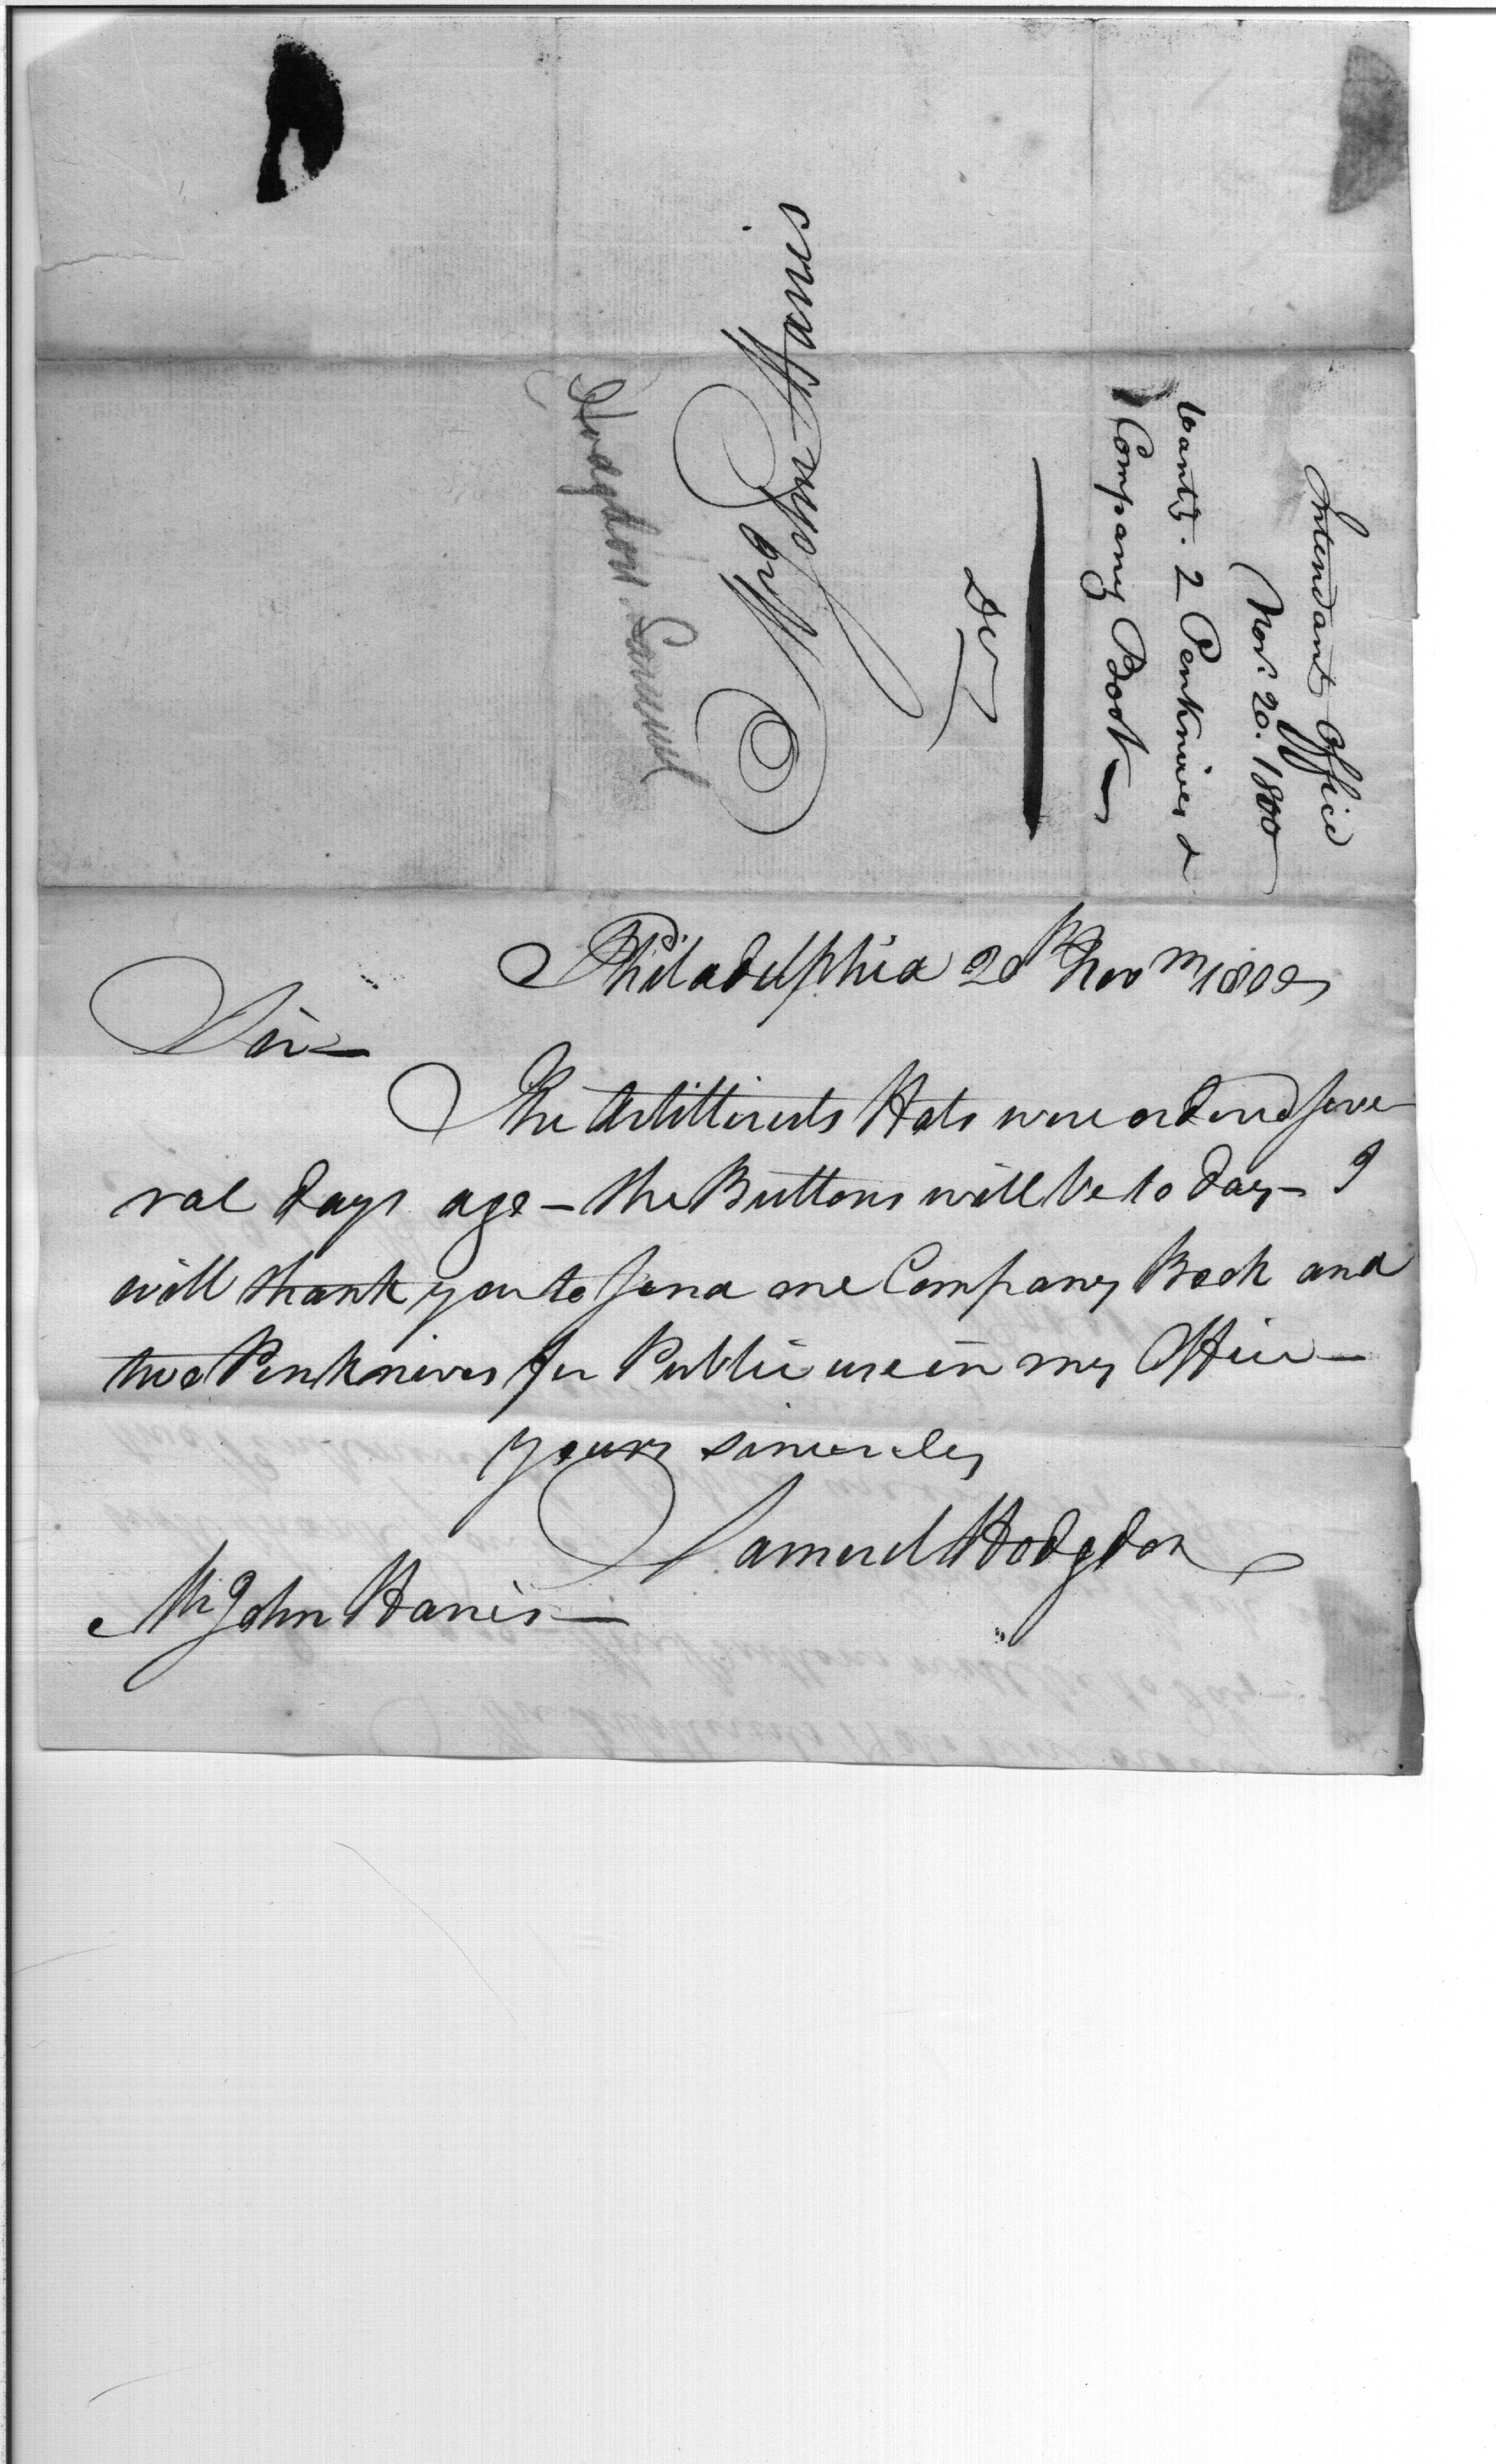 Intendants Office
Nov. 20. 1800
wants. 2 Penknives &
1 Company Book
Mr John Harris
Hodgdon Samuel
Philadelphia 20th Novm 1800
Sir
The Artillerists Hats were ordered seve
ral days ago - the Buttons will be to day - I
will thank you to send one Company Book and
two Penknives for Public use in my Office
yours sincerely
Samuel Hodgdon
Mr John Harris